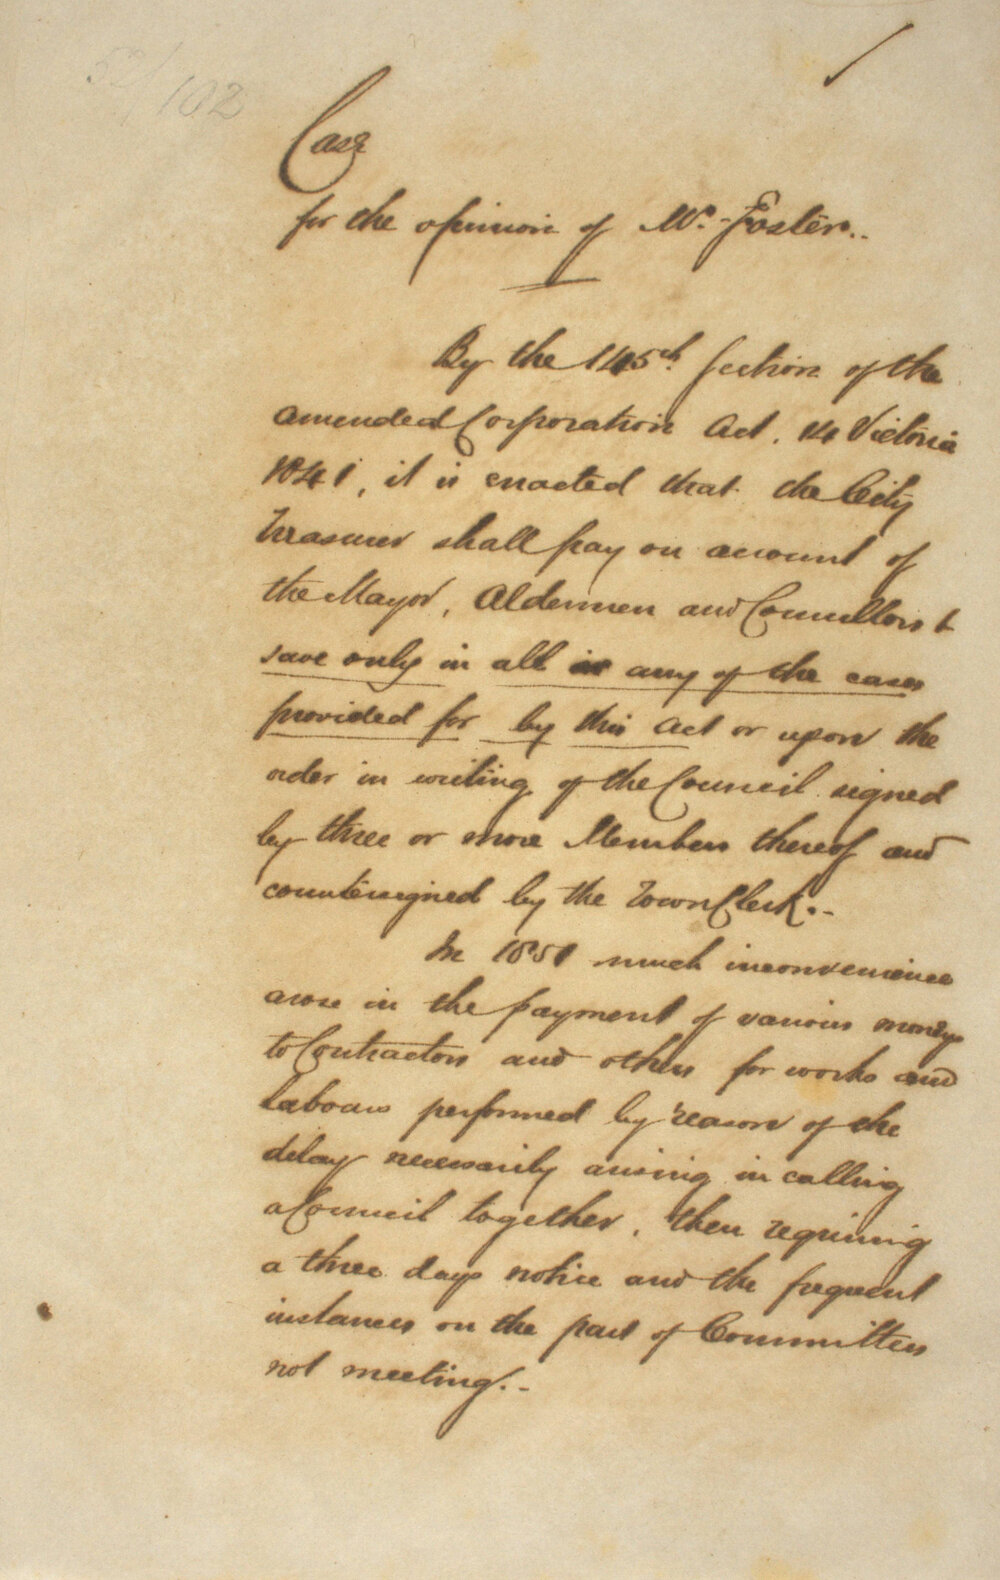 52/102
Case
for the opinion of Mr. Foster..
By the 145th. Section of the
amended Corporation Act, 14 Victoria
No 41, it is enacted that the City
Treasurer shall pay on account of
the Mayor, Aldermen and Councillors &
save only in all or any of the cases
provided for by this Act or upon the
order in writing of the Council signed
by three or more Members thereof and
countersigned by the Town Clerk.-
In 1851 much inconvenience
arose in the payment of various moneys
to Contractors and others for works and
labours performed by reason of the
delay necessarily arising in calling
a Council together, then requiring
a three days notice and the frequent
instances on the part of Committees
not meeting.-